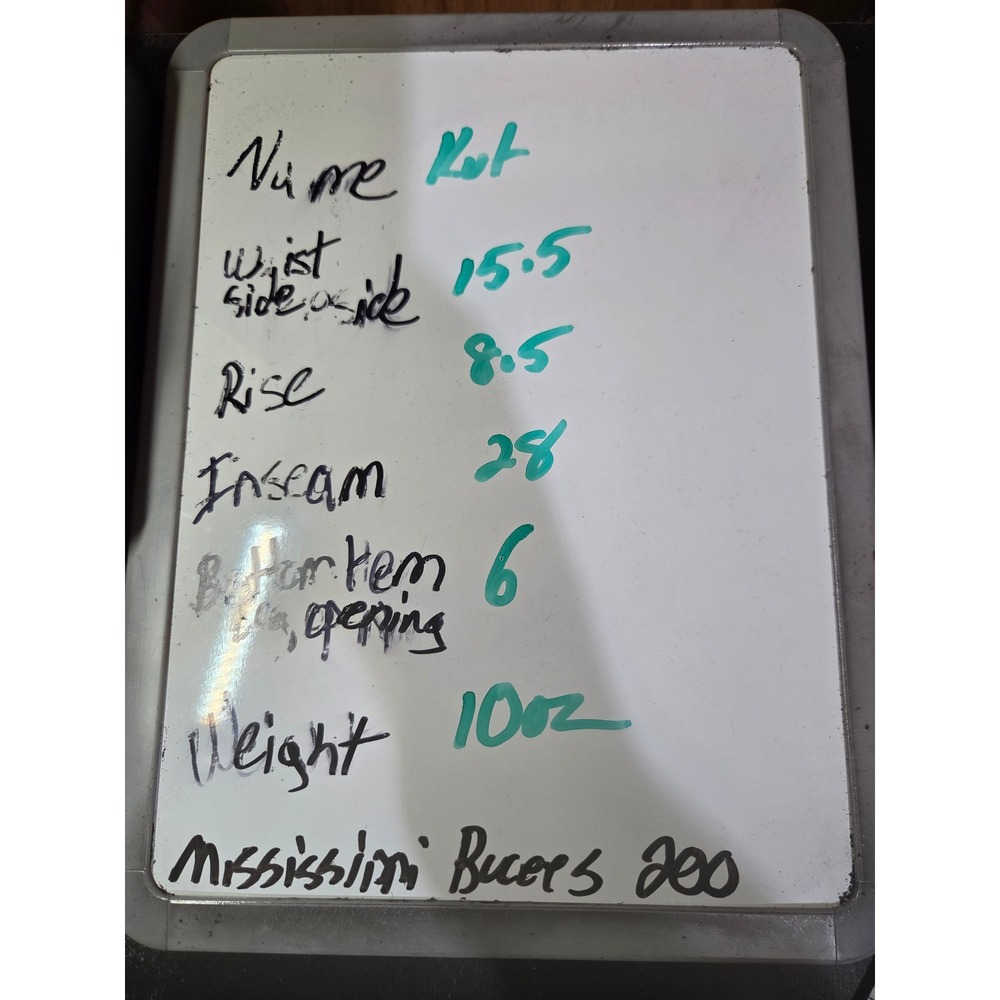 Name Kut
Waist 15.5
side to side
Rise 8.5
Inseam 28
Bottom Hem 6
Leg opening
Weight 10oz
Mississimi Bucees 200